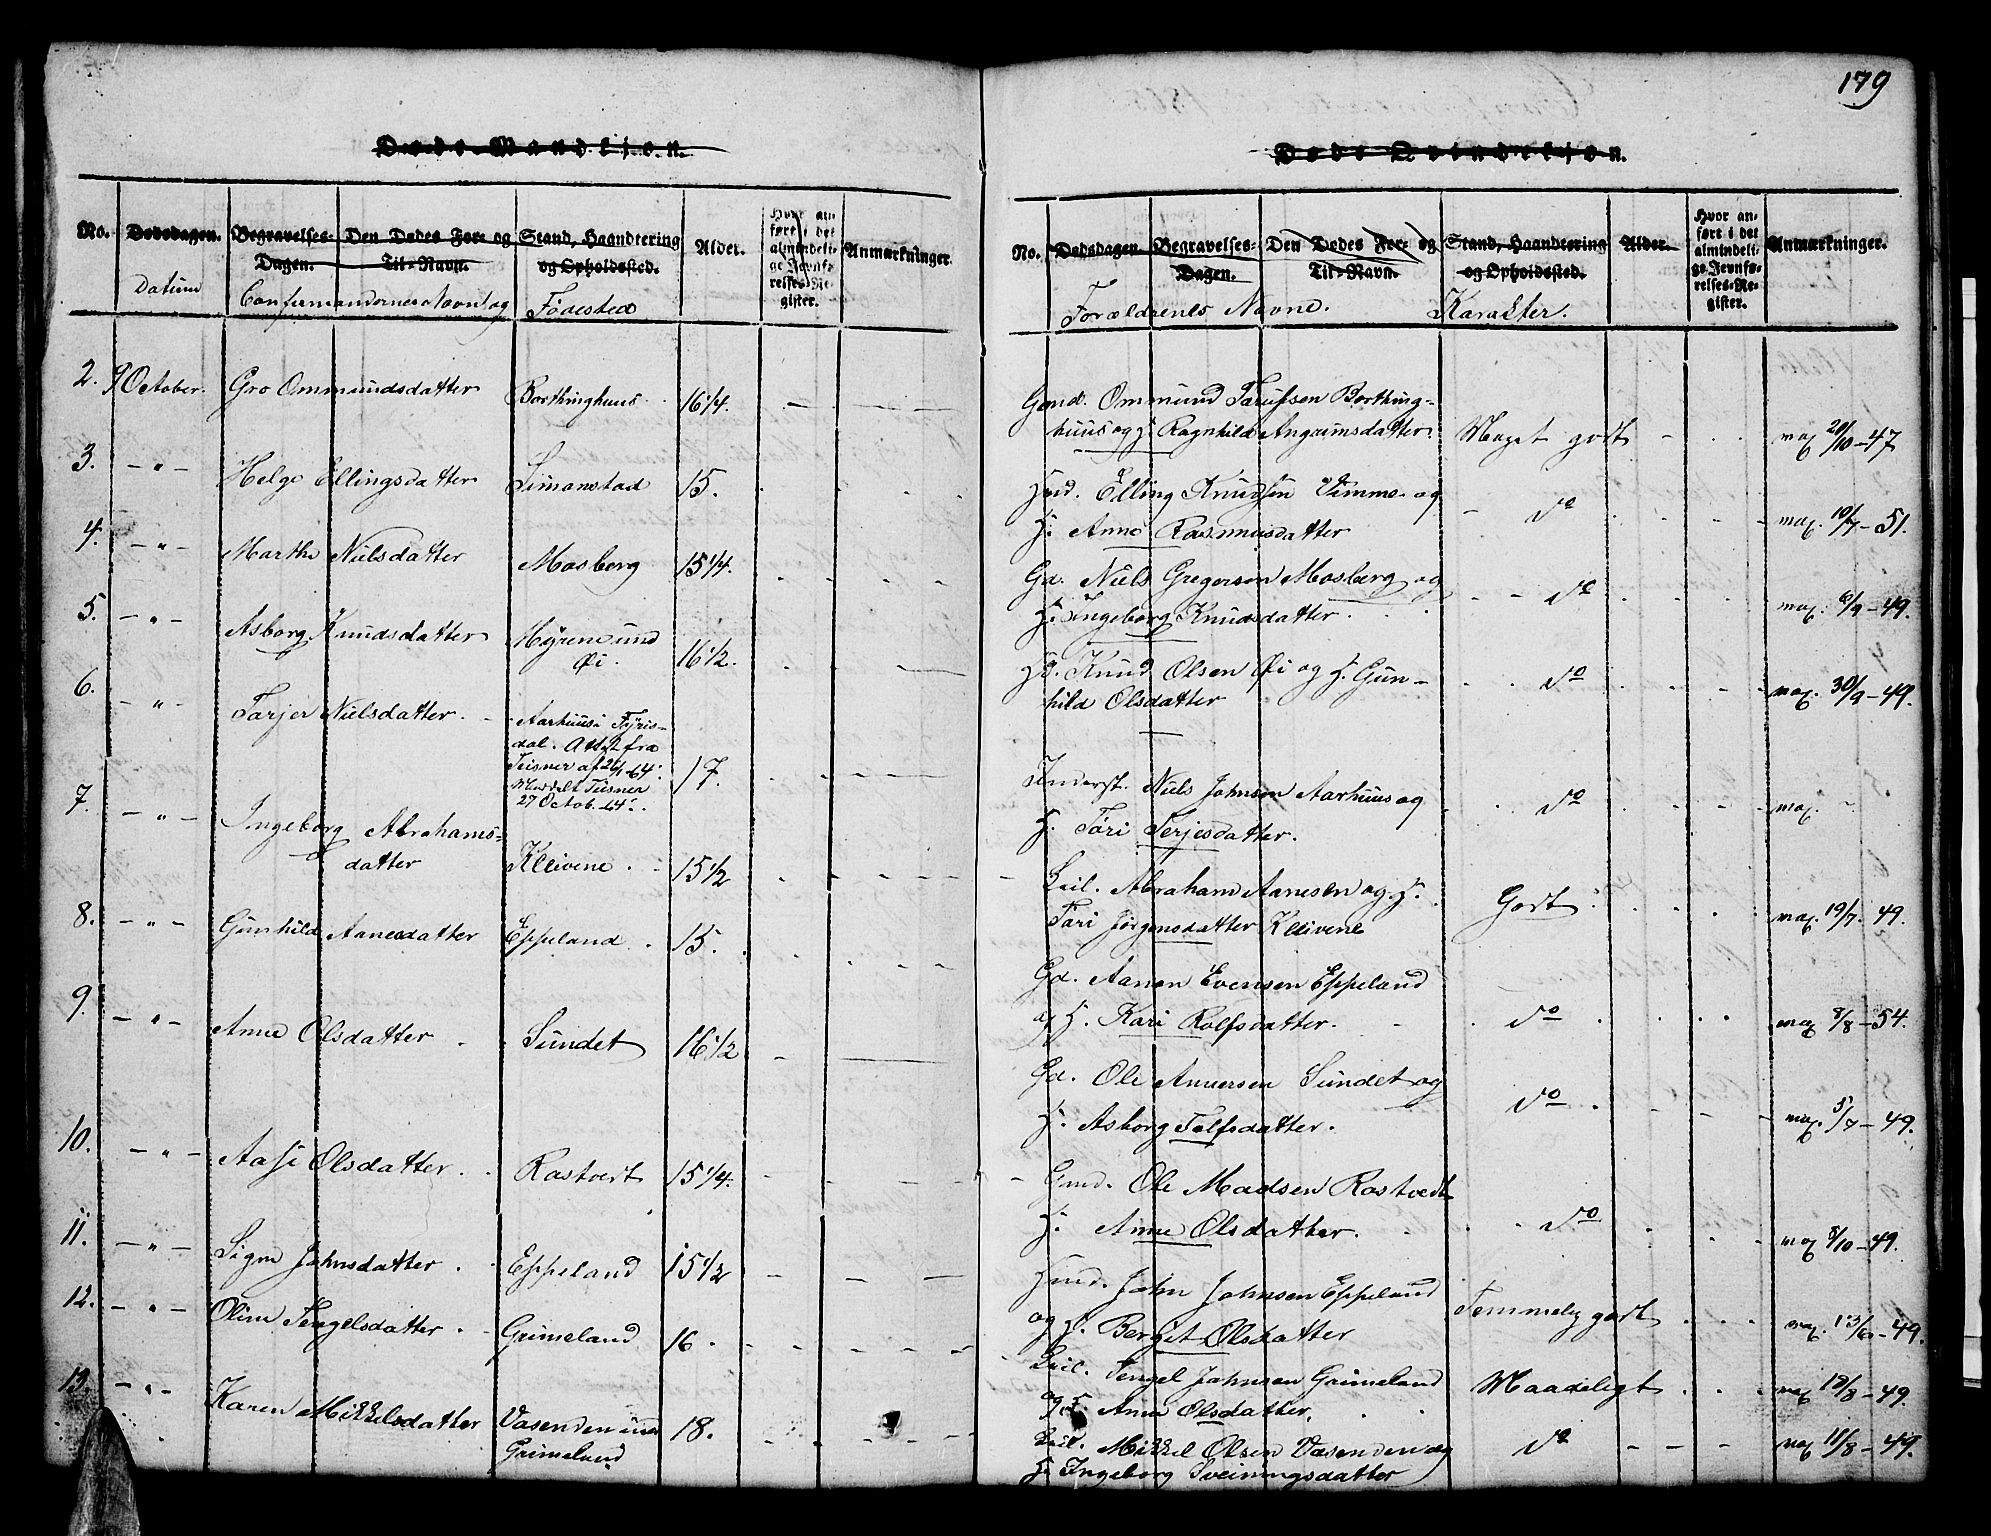 179
Døde Mandkjøn.
No.
Dødsdagen.
Begravelses-Dagen.
Den Dødes For- og Til-Navn.
Stand, Haandtering og Opholdssted.
Alder.
Hvor anført i det almindelige Jevnførelses-Register.
Anmærkninger
Datum
Confirmandernes Navn og
Fødested
2. 9 October. Gro Ommundsdatter Borthinghuus 16 1/4. — — —
3. – " – Helge Ellingsdatter Simonstad 15.
4. – " – Marthe Nielsdatter Mosberg 15 1/4.
5. – " – Asborg Knudsdatter Myrene und
Øi. 16 1/2.
6. – " – Tarjer Nielsdatter. Aarhuus i Fyris-
dal. Att. 2 fra
Teisner af 26/1-64.
Meddelt Teisner
27 Octob. 64. 17.
7. – " – Ingeborg Abrahams-
datter Kleivene 15 1/2
8. – " – Gunhild Aanesdatter Eppeland 15.
9. – " – Anne Olsdatter Sundet 16 1/2
10. – " – Aase Olsdatter. Rastvedt 15 1/4.
11. – " – Signe Johnsdatter. Eppeland 15 1/2
12. – " – Oline Tengelsdatter. Grimeland 16.
13. – " – Karen Mikkelsdatter Vasenden und
Grimeland 18.
Døde Qvindekjøn.
No.
Dødsdagen
Begravelses-Dagen.
Den Dødes For- og Til-Navn.
Stand, Haandtering og Opholdssted.
Alder.
Hvor anført i det almindelige Jevnførelses-Register.
Anmærkninger.
Forældrenes Navne.
Karakter.
Gmd. Ommund Tarussen Borthing-
huus og H. Ragnhild Angrimsdatter. Meget godt vac. 20/10-47
Hmd. Elling Knudsen Simme og
H. Anne Rasmusdatter do vac. 10/7-51.
Gd. Niels Gregersen Mosberg og
H. Ingeborg Knudsdatter. do vac. 6/9-49.
Hd. Knud Olsen Øi og H. Gun-
hild Olsdatter do vac. 30/9-49.
Inderst. Niels Johnsen Aarhuus og
H. Tøri Terjesdatter. do vac.
Leil. Abraham Aanesen og H.
Tari Jørgensdatter Kleivene Godt vac. 19/7-49.
Gd. Aanen Evensen Eppeland
og H. Kari Rolfsdatter. do vac. 8/8-54.
Gd. Ole Anuersen Sundet og
H. Asborg Tolfsdatter. do vac. 5/7-49.
Gmd. Ole Madsen Rastvedt
H. Anne Olsdatter. do vac. 8/10-49.
Hmd. John Johnsen Eppeland
og H. Berget Olsdatter Temmelig godt vac. 13/6-49.
Leil. Tengel Johnsen Grimeland
og H. Anne Olsdatter. Maadeligt vac. 19/8-49.
Leil. Mikkel Olsen Vasenden og
H. Ingeborg Sveinungsdatter do vac. 11/8-49.